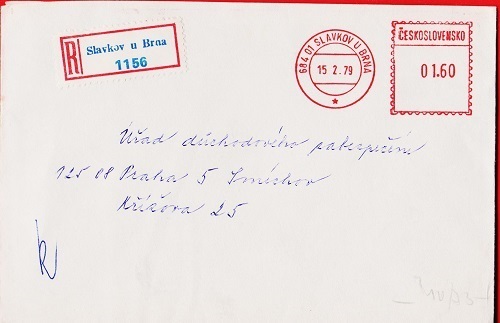 R Slavkov u Brna
1156
684 01 SLAVKOV U BRNA
15 2. 79
ČESKOSLOVENSKO
01.60
Úřad důchodového zabezpečení
125 08 Praha 5 Smíchov
Křížova 25
R